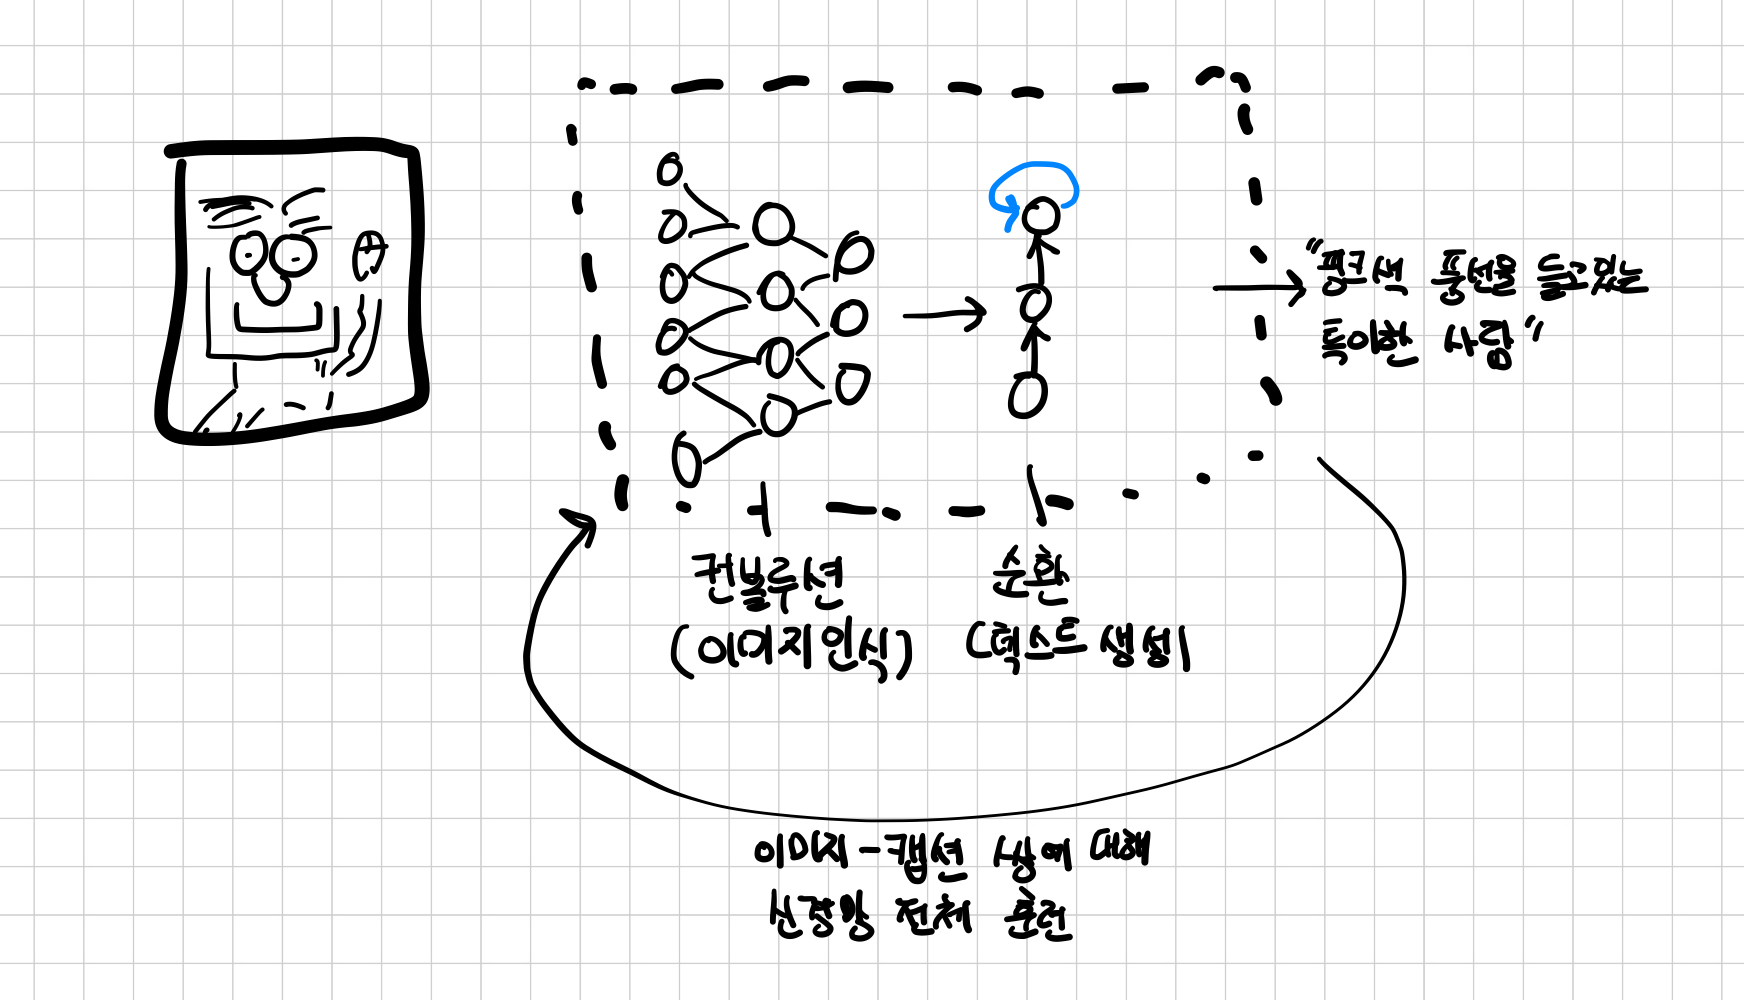 "핑크색 풍선을 들고있는
특이한 사람"
컨볼루션
(이미지인식)
순환
(텍스트 생성)
이미지-캡션 쌍에 대해
신경망 전체 훈련